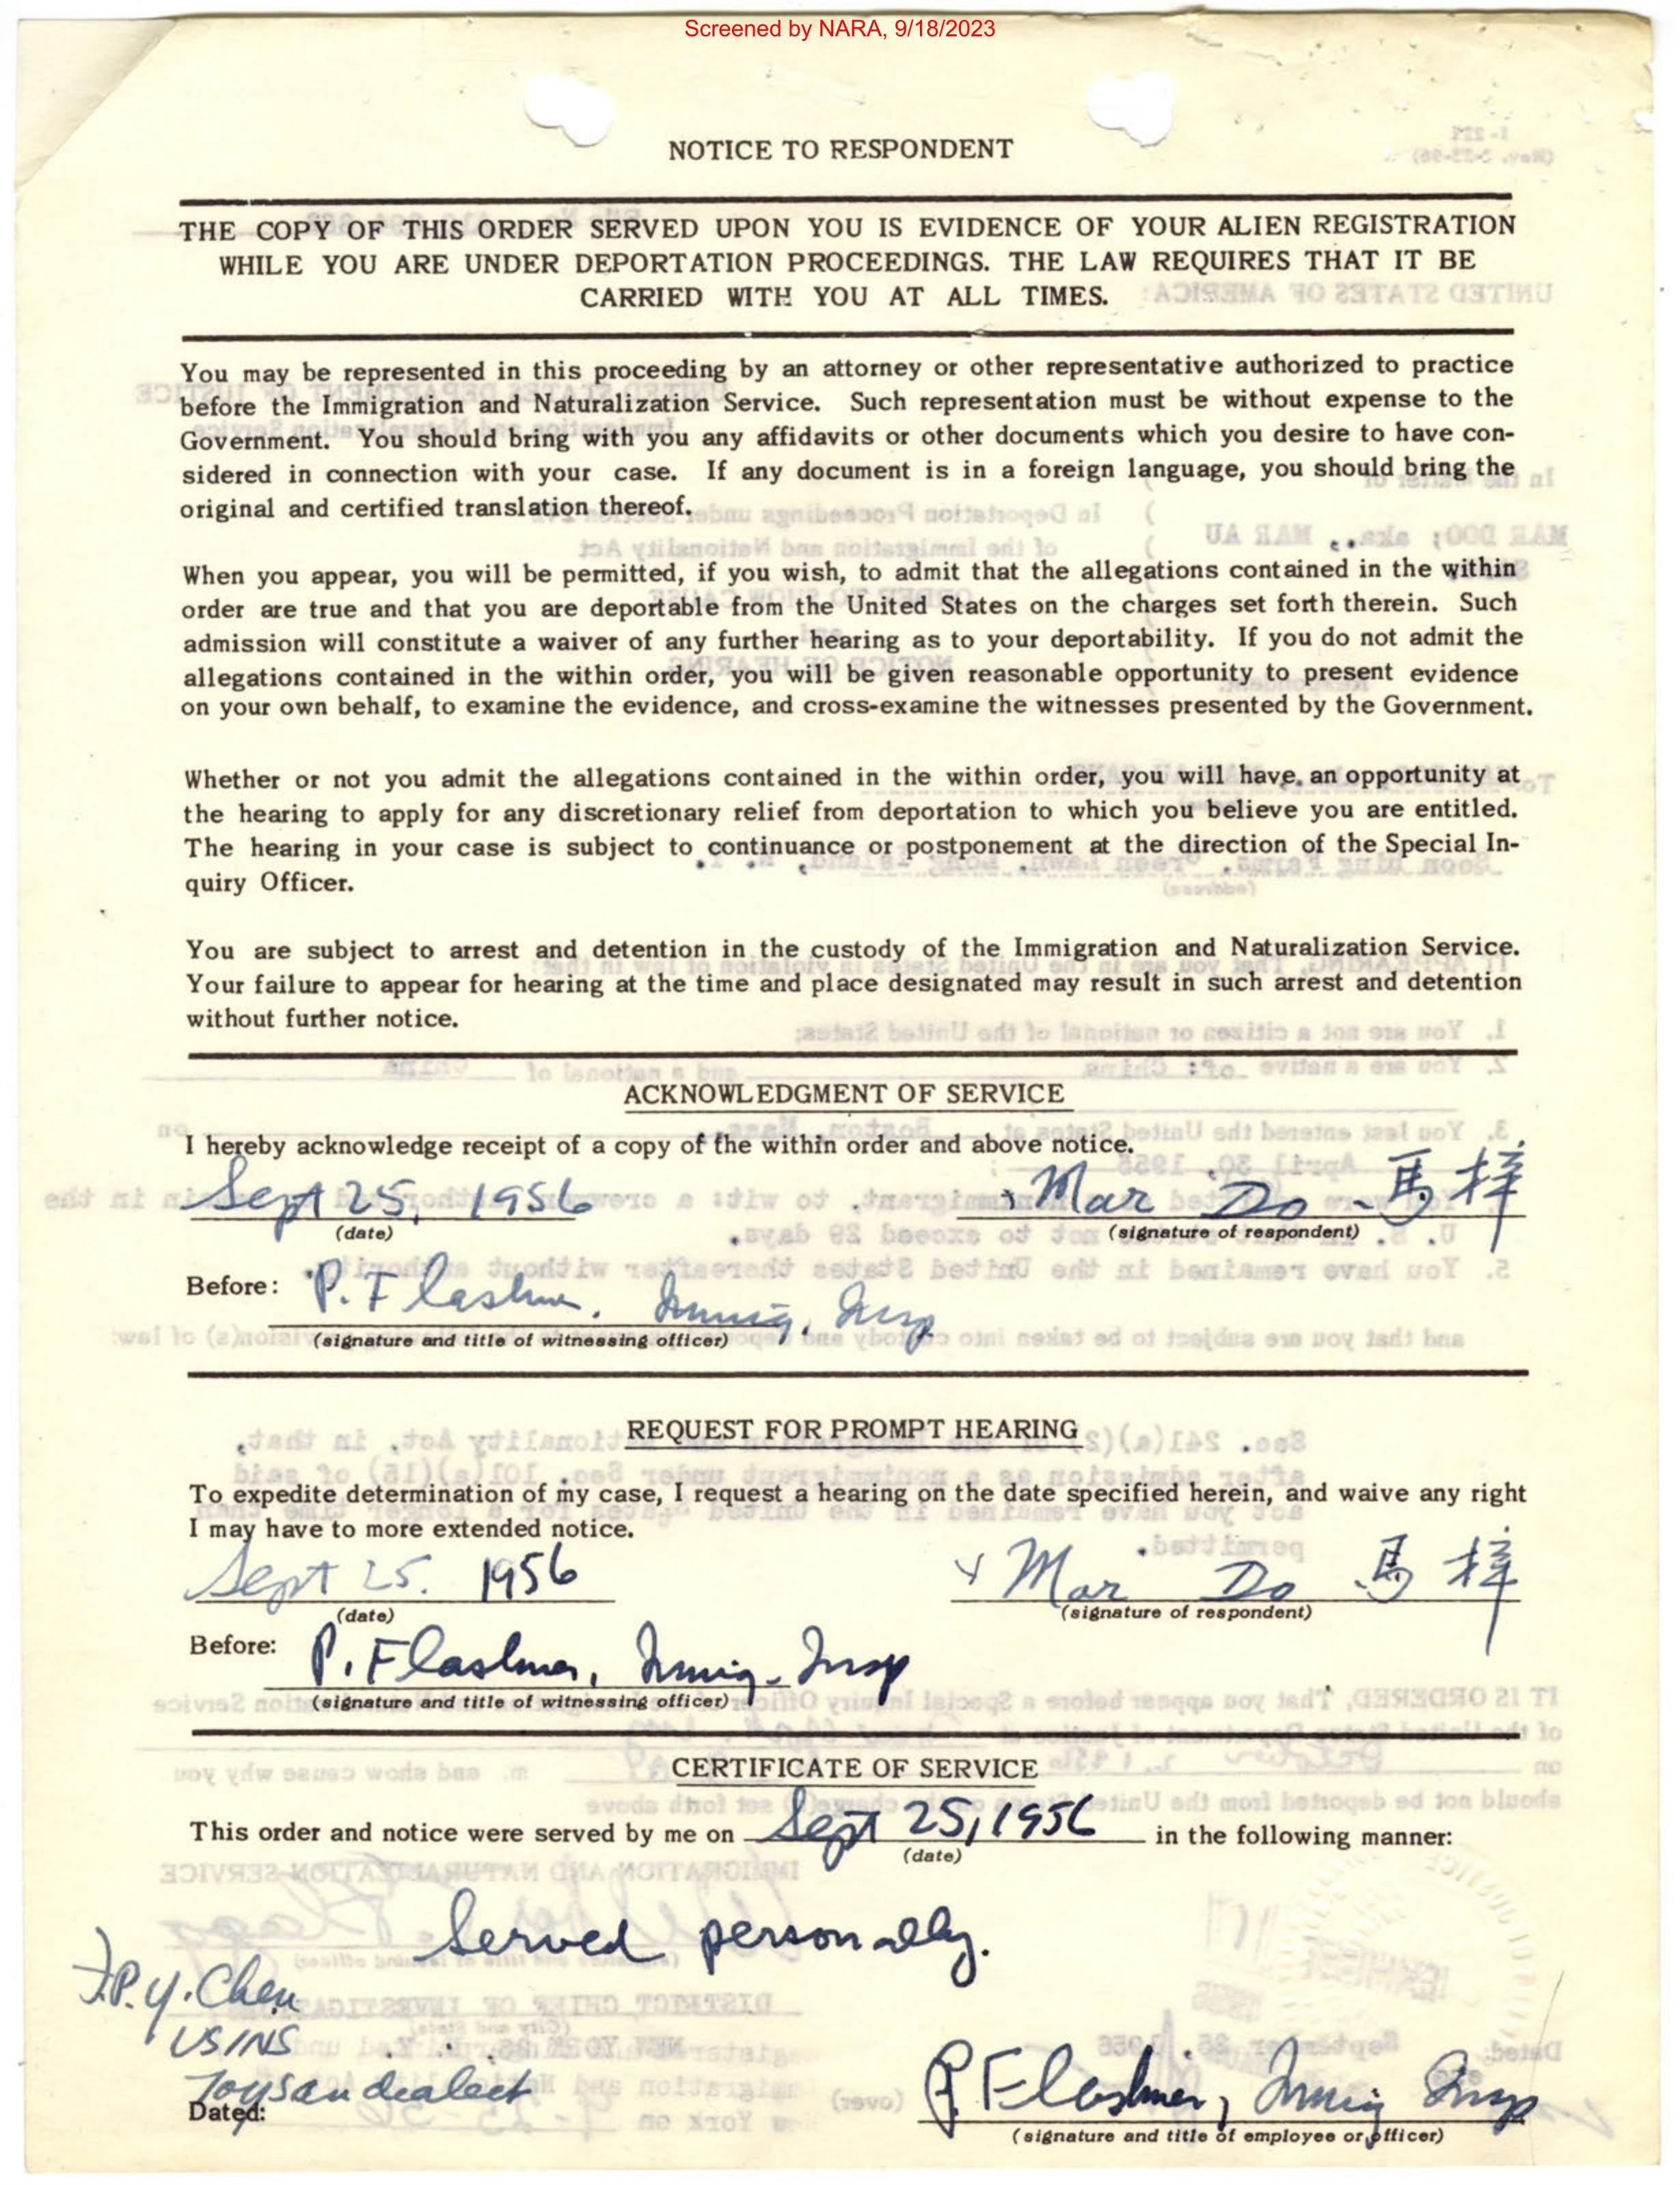 Screened by NARA, 9/18/2023
NOTICE TO RESPONDENT
THE COPY OF THIS ORDER SERVED UPON YOU IS EVIDENCE OF YOUR ALIEN REGISTRATION
WHILE YOU ARE UNDER DEPORTATION PROCEEDINGS. THE LAW REQUIRES THAT IT BE
CARRIED WITH YOU AT ALL TIMES.
You may be represented in this proceeding by an attorney or other representative authorized to practice
before the Immigration and Naturalization Service. Such representation must be without expense to the
Government. You should bring with you any affidavits or other documents which you desire to have con-
sidered in connection with your case. If any document is in a foreign language, you should bring the
original and certified translation thereof.
When you appear, you will be permitted, if you wish, to admit that the allegations contained in the within
order are true and that you are deportable from the United States on the charges set forth therein. Such
admission will constitute a waiver of any further hearing as to your deportability. If you do not admit the
allegations contained in the within order, you will be given reasonable opportunity to present evidence
on your own behalf, to examine the evidence, and cross-examine the witnesses presented by the Government.
Whether or not you admit the allegations contained in the within order, you will have an opportunity at
the hearing to apply for any discretionary relief from deportation to which you believe you are entitled.
The hearing in your case is subject to continuance or postponement at the direction of the Special In-
quiry Officer.
You are subject to arrest and detention in the custody of the Immigration and Naturalization Service.
Your failure to appear for hearing at the time and place designated may result in such arrest and detention
without further notice.
ACKNOWLEDGMENT OF SERVICE
I hereby acknowledge receipt of a copy of the within order and above notice.
Sept 25, 1956 x Mar Do - 馬梓
(date) (signature of respondent)
Before: P. Flashner, Immig. Insp
(signature and title of witnessing officer)
REQUEST FOR PROMPT HEARING
To expedite determination of my case, I request a hearing on the date specified herein, and waive any right
I may have to more extended notice.
Sept 25. 1956 x Mar Do 馬梓
(date) (signature of respondent)
Before: P. Flashner, Immig. Insp
(signature and title of witnessing officer)
CERTIFICATE OF SERVICE
This order and notice were served by me on Sept 25, 1956 in the following manner:
(date)
Served personally.
P.Y. Chen
USINS
Toysan dialect
Dated: P. Flashner, Immig Insp
(signature and title of employee or officer)